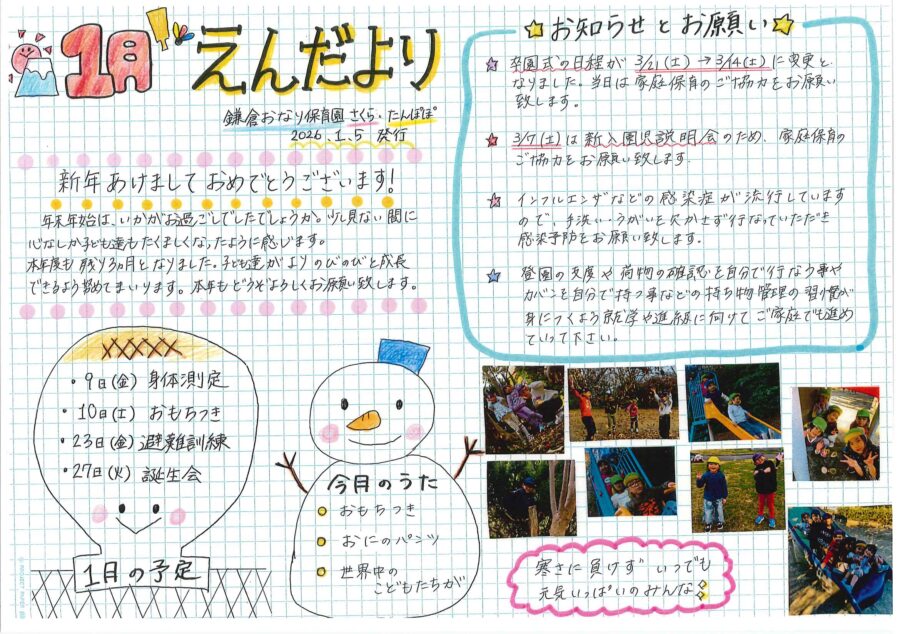 1月 えんだより
鎌倉おなり保育園 さくら・たんぽぽ
2026.1.5 発行
新年あけましておめでとうございます!
年末年始は、いかがお過ごしでしたでしょうか。少し見ない間に
心なしか子ども達もたくましくなったように感じます。
本年度も残り3ヵ月となりました。子ども達がよりのびのびと成長
できるよう努めてまいります。本年もどうぞよろしくお願い致します。
・9日(金) 身体測定
・10日(土) おもちつき
・23日(金) 避難訓練
・27日(火) 誕生会
1月の予定
今月のうた
おもちつき
おにのパンツ
世界中の
こどもたちが
☆お知らせとお願い☆
☆ 卒園式の日程が 3/21(土)→3/14(土)に変更と
なりました。当日は家庭保育のご協力をお願い
致します。
★ 3/7(土)は新入園児説明会のため、家庭保育の
ご協力をお願い致します。
☆ インフルエンザなどの感染症が流行しています
ので、手洗い・うがいを欠かせず行なっていただき
感染予防をお願い致します。
★ 登園の支度や荷物の確認を自分で行なう事や
カバンを自分で持つ事などの持ち物管理の習慣が
身につくよう就学や進級に向けてご家庭でも進め
ていって下さい。
寒さに負けず いつでも
元気いっぱいのみんな!